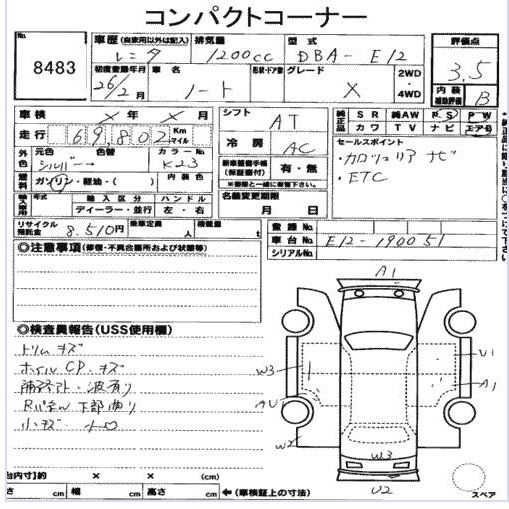 コンパクトコーナー
No. 8483
車歴 (自家用以外は記入) レンタ
排気量 1200cc
型式 DBA-E12
評価点 3.5
初度登録年月 26年 2月
車名 ノート
形状・ドア数
グレード X
2WD・4WD
内装補助評価 B
車検 X 年 X 月
シフト AT
純正品 SR 純AW PS PW
カワ TV ナビ エアB
走行 69,802 Km マイル
冷房 AC
セールスポイント
・カロッツェリア ナビ
・ETC
外色 元色 シルバー 色替 → カラーNo. K23
新車整備手帳(保証書付) 有・無
※書類と一緒に御提下さい。
燃料 ガソリン・軽油・( ) 内装色
名義変更期限 月 日
輸入車 年式 輸入区分 ディーラー・並行 ハンドル 左・右
リサイクル預託金 8,510円 乗車定員 人 積載量 t
登録No.
車台No. E12-190051
シリアルNo.
◎注意事項 (修復・不具合箇所および状態等)
A1
◎検査員報告(USS使用欄)
トリム キズ
ホイルCP、キズ
雨ジミアト・波有り
Rパネル 下部曲り
小キズ 小凹
W3
U1
A1
AU1
W2
W3
U2
(台内寸)約 × × (cm)
さ cm 幅 cm 高さ cm ←(車検証上の寸法)
スペア